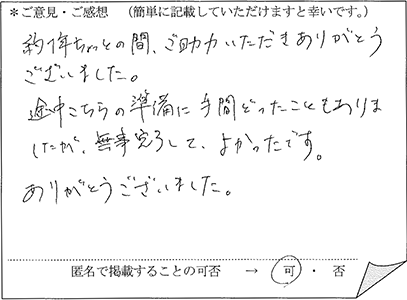 *ご意見・ご感想 (簡単に記載していただけますと幸いです。)
約1年ちょっとの間、ご助力いただきありがとう
ございました。
途中こちらの準備に手間どったこともありま
したが、無事完了して、よかったです。
ありがとうございました。
匿名で掲載することの可否 → 可 ・ 否